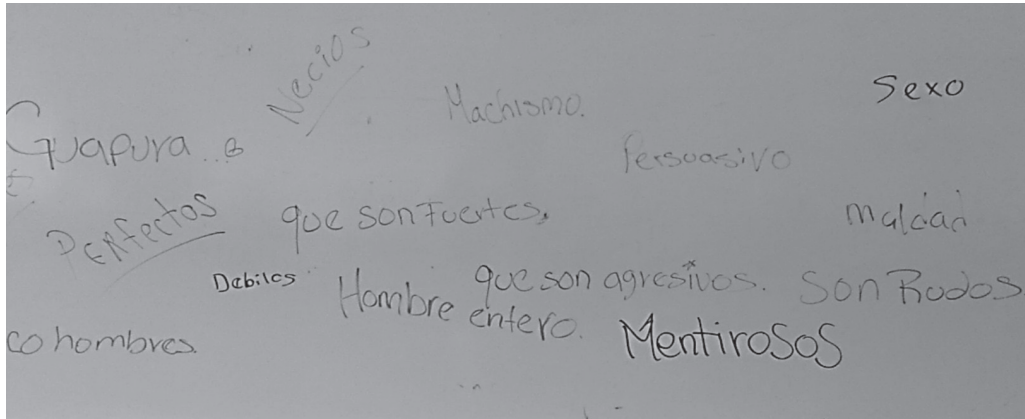 Necios
Sexo
Machismo.
Guapura..
Persuasivo
Perfectos
que son Fuertes.
maldad
Debiles
que son agresivos.
Son Rudos
Hombre entero.
Mentirosos
co hombres.